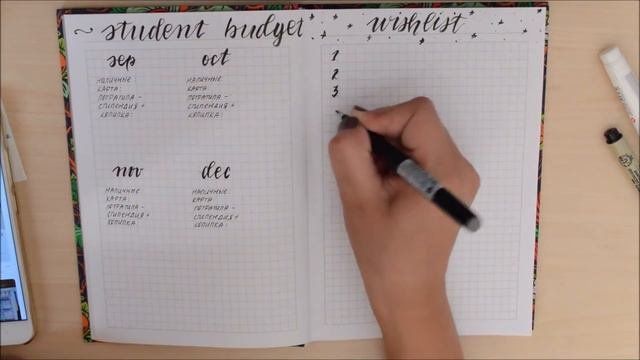 ~ student budget
sep oct
наличные: наличные:
карта: карта:
потратила- потратила-
стипендия+ стипендия+
копилка: копилка:
nov dec
наличные: наличные:
карта: карта:
потратила- потратила-
стипендия+ стипендия+
копилка: копилка:
wishlist
1
2
3